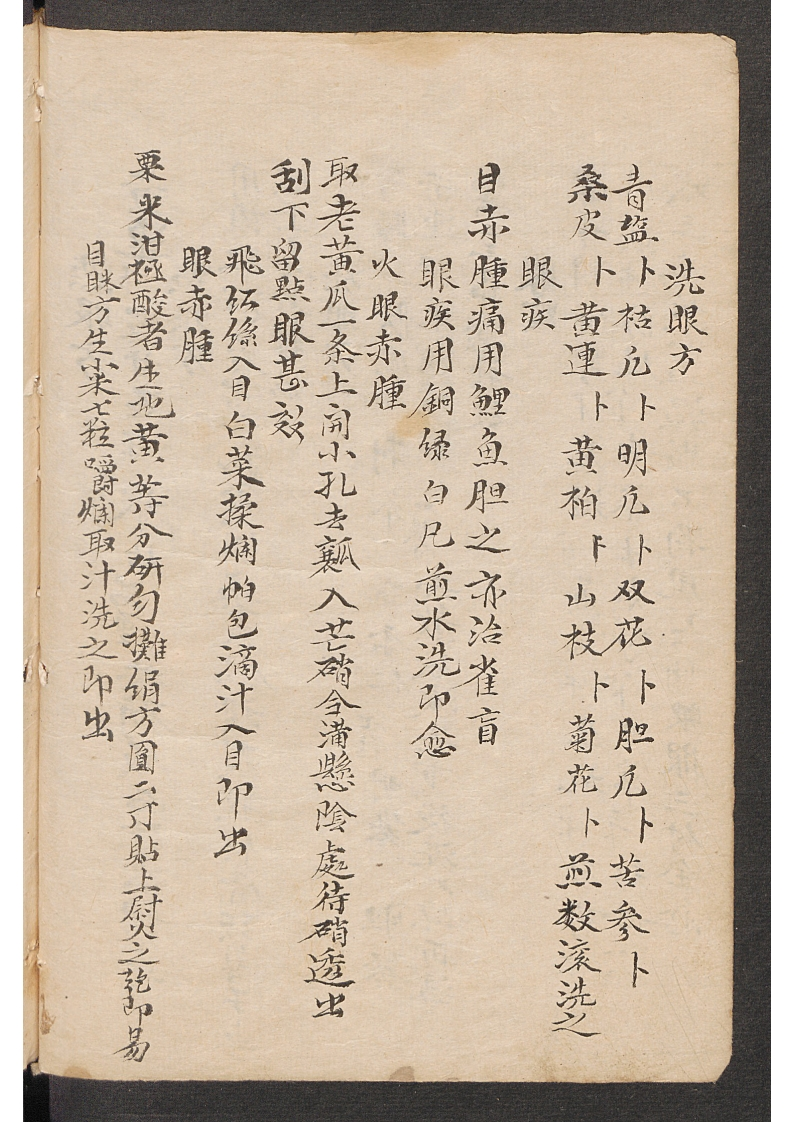 洗眼方
青塩卜枯凡卜明凡卜双花卜胆凡卜苦参卜
桑皮卜黄連卜黄柏卜山枝卜菊花卜煎数滚洗之
眼疾
目赤腫痛用鯉魚胆之亦治雀盲
眼疾用銅绿白凡煎水洗即愈
火眼赤腫
取老黄瓜一条上開小孔去瓤入芒硝令满懸陰處待硝透出
刮下留點眼甚効
飛红絲入目白菜揉爛帕包滴汁入目即出
眼赤腫
粟米泔極酸者生地黄等分研匀攤绢方圓二寸貼上熨之乾即易
目眯方生小米七粒嚼爛取汁洗之即出